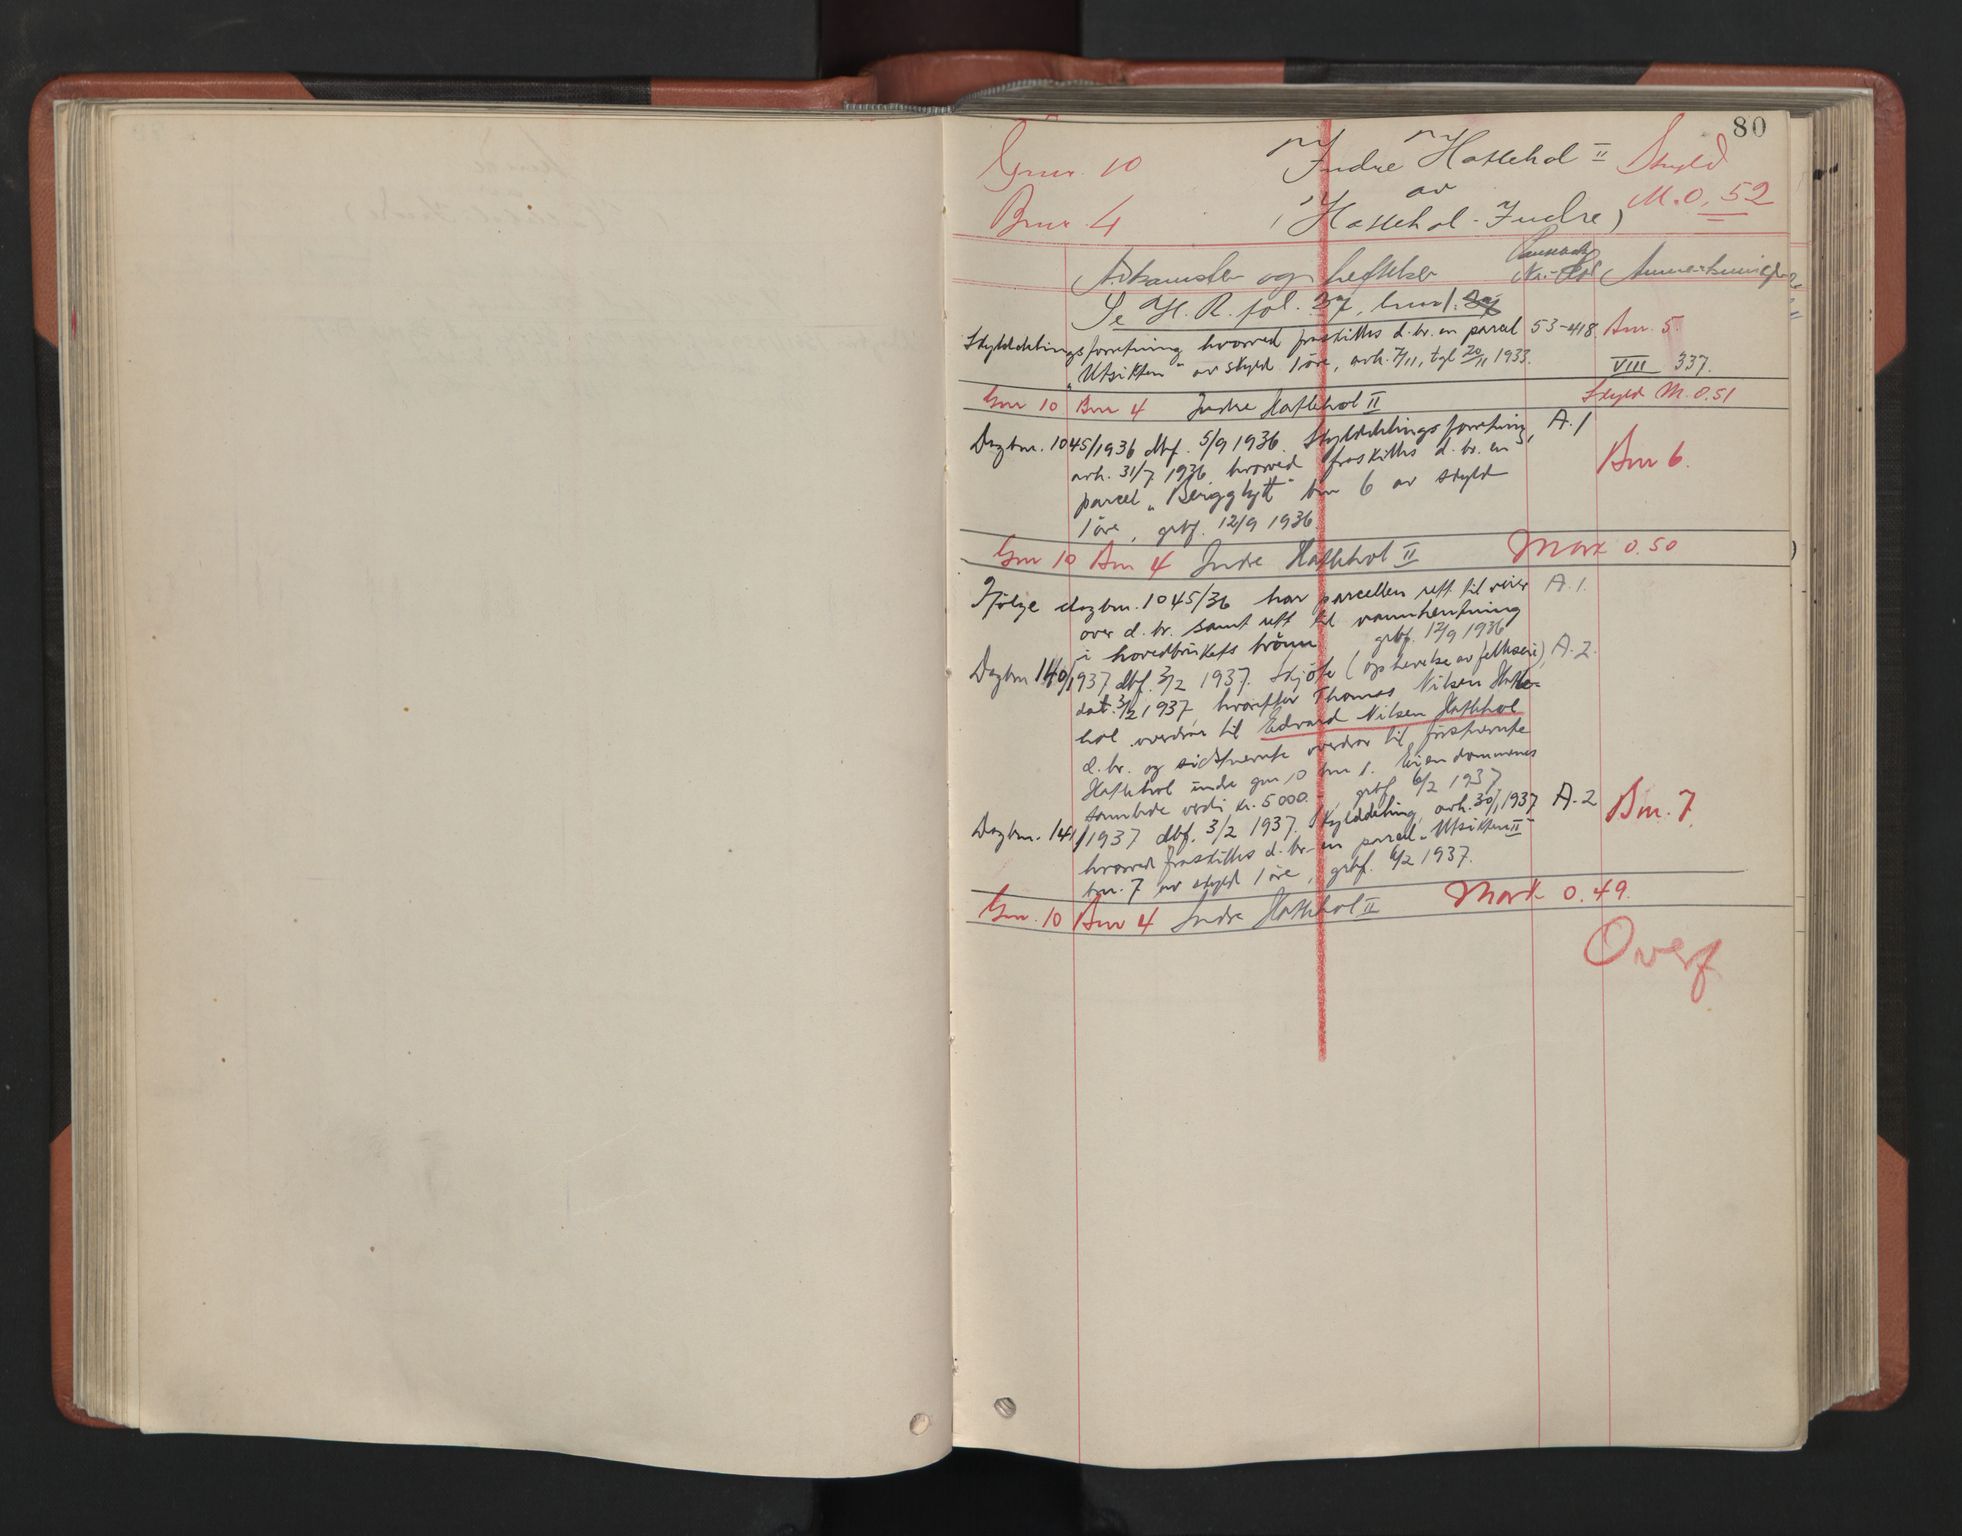 80
Gnr. 10 Indre Hatlehol II Skyld
av M. 0,52
Bnr. 4 (Hatlehol-Indre)
Adkomster og heftelser Nr.-fol Anmerkninger
Se H. R. fol. 37, bnr 1.
Skylddelingsforretning hvorved fraskilles d. br. en parcel 53-418 Bnr. 5.
"Utsikten" av skyld 1 øre, avh. 7/11, tgl 20/11 1933. VIII 337.
Gnr 10 Bnr 4 Indre Hatlehol II Skyld M. 0.51
Dagbnr. 1045/1936 dbf. 5/9 1936. Skylddelingsforretning, A. 1
avh. 31/7 1936 hvorved fraskilles d. br. en Bnr 6.
parcel "Bergglytt" bnr 6 av skyld
1 øre, grbf. 12/9 1936.
Gnr 10 Bnr 4 Indre Hatlehol II Mark 0.50
Ifølge dagbnr. 1045/36 har parcellen rett til veier A. 1.
over d. br. samt rett til vannhentning
i hovedbrukets brønn grbf. 12/9 1936
Dagbnr 140/1937 dbf. 3/2 1937. Skjøte (ophevelse av felleseie), A. 2.
dat. 3/2 1937, hvorefter Thomas Nilsen Hatle-
hol overdrar til Edvard Nilsen Hatlehol
d. br. og sistnevnte overdrar til førstnevnte
Hatlehol indre gnr 10 bnr 1. Eiendommenes
samlede verdi kr. 5000.- grbf 6/2 1937
Dagbnr. 141/1937 dbf. 3/2 1937. Skylddeling, avh. 30/1 1937 A. 2 Bnr. 7.
hvorved fraskilles d. br. en parcel "Utsikten II"
bnr. 7 av skyld 1 øre, grbf. 6/2 1937.
Gnr. 10 Bnr 4 Indre Hatlehol II Mark 0.49.
Overf